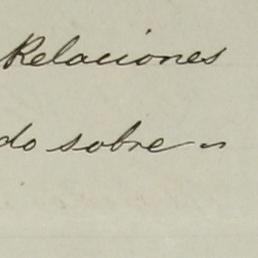 Relaciones
do sobre